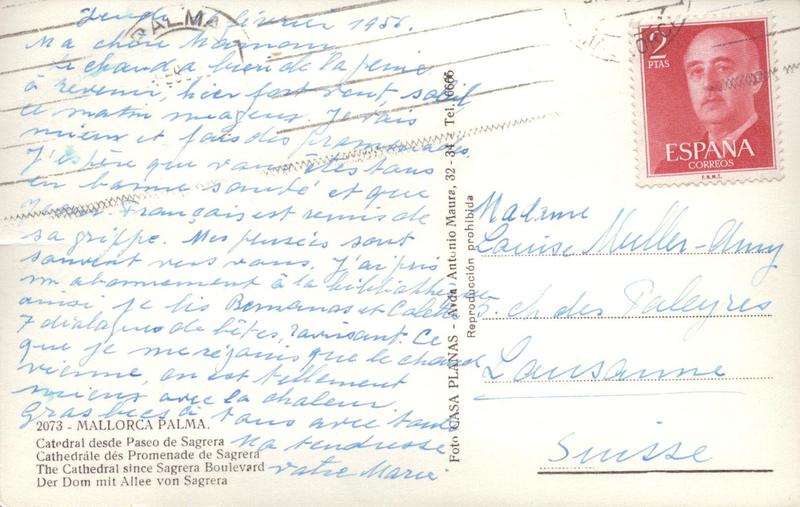 PALMA
février 1956.
Ma chère Maman
chaud a bien de la peine
à revenir, hier fort vent, soleil
ce matin nuageux. Je vais
mieux et fais des promenades.
J'espère que vous êtes tous
en bonne santé et que
Français est remis de
sa grippe. Mes pensées sont
souvent vers vous. J'ai pris
un abonnement à la bibliothèque
ainsi je lis Bernanos et Colette
7 dialogues de bêtes, ravissant. Ce
que je me réjouis que le chaud
vienne, on est tellement
mieux avec la chaleur.
Gros becs à tous avec tout
Ma tendresse
votre Marie
2073 - MALLORCA PALMA.
Catedral desde Paseo de Sagrera
Cathédrále dés Promenade de Sagrera
The Cathedral since Sagrera Boulevard
Der Dom mit Allee von Sagrera
Foto CASA PLANAS - Avda Antonio Maura, 32 - 34 - Tel. 16666
Reproducción prohibida
2
PTAS
ESPAÑA
CORREOS
F.N.M.T.
Madame
Louise Muller-Amy
5. ch des Paleyres
Lausanne
Suisse